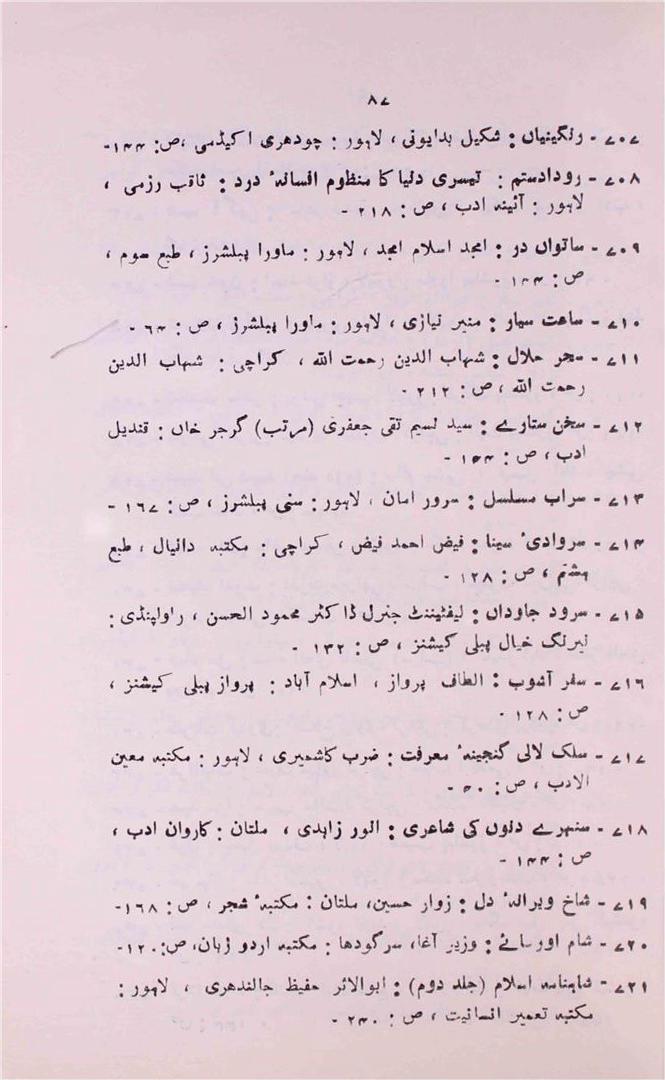 ۸۷
۷۰۷ - رنگینیاں : شکیل بدایونی ، لاہور : چودھری اکیڈمی ،ص: ۱۴۴-
۷۰۸ - رودادستم : تیسری دنیا کا منظوم افسانۂ درد : ثاقب رزمی ،
لاہور : آئینۂ ادب ، ص : ۲۱۸ -
۷۰۹ - ساتواں در : امجد اسلام امجد ، لاہور : ماورا پبلشرز ، طبع سوم ،
ص : ۱۴۴ -
۷۱۰ - ساعت سیار : منیر نیازی ، لاہور : ماورا پبلشرز ، ص : ۶۴ -
۷۱۱ - سحر حلال : شہاب الدین رحمت اللہ ، کراچی : شہاب الدین
رحمت اللہ ، ص : ۲۱۲ -
۷۱۲ - سخن ستارے : سید نسیم تقی جعفری (مرتب) گرجر خاں : قندیل
ادب ، ص :
۷۱۳ - سراب مسلسل : سرور امان ، لاہور : سنی پبلشرز ، ص : ۱۶۷ -
۷۱۴ - سروادیٔ سینا : فیض احمد فیض ، کراچی : مکتبہ دانیال ، طبع
ہشتم ، ص : ۱۲۸ -
۷۱۵ - سرود جاوداں : لیفٹیننٹ جنرل ڈاکٹر محمود الحسن ، راولپنڈی :
نیرنگ خیال پبلی کیشنز ، ص : ۱۳۲ -
۷۱۶ - سفر آشوب : الطاف پرواز ، اسلام آباد : پرواز پبلی کیشنز ،
ص : ۱۲۸ -
۷۱۷ - سلک لالی گنجینۂ معرفت : ضرب کاشمیری ، لاہور : مکتبہ معین
الادب ، ص : ۴۰ -
۷۱۸ - سنہرے دنوں کی شاعری : انور زاہدی ، ملتان : کاروان ادب ،
ص : ۱۴۴ -
۷۱۹ - شاخ ویرانۂ دل : زوار حسین، ملتان : مکتبۂ شجر ، ص : ۱۶۸-
۷۲۰ - شام اور سائے : وزیر آغا، سرگودھا : مکتبہ اردو زبان، ص: ۱۲۰-
۷۲۱ - شاہنامہ اسلام (جلد دوم) : ابوالاثر حفیظ جالندھری ، لاہور :
مکتبہ تعمیر انسانیت ، ص : ۲۴۰ -